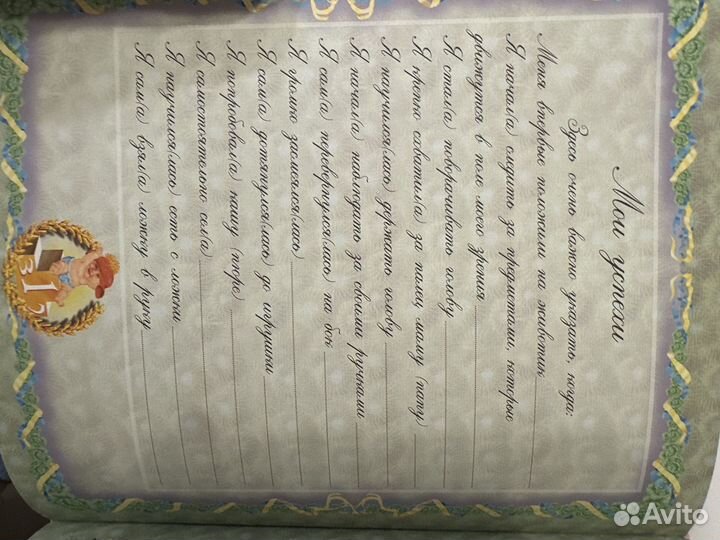 Мои успехи
Здесь очень важно указать, когда:
Меня впервые положили на животик
Я начал(а) следить за предметами, которые
движутся в поле моего зрения
Я стал(а) поворачивать голову
Я крепко схватил(а) за палец маму (папу)
Я научился(лась) держать голову
Я начал(а) наблюдать за своими ручками
Я сам(а) перевернулся(лась) на бок
Я громко засмеялся(лась)
Я сам(а) дотянулся(лась) до игрушки
Я попробовал(а) кашу (пюре)
Я самостоятельно сел(а)
Я научился(лась) есть с ложки
Я сам(а) взял(а) ложку в руку
31
Avito